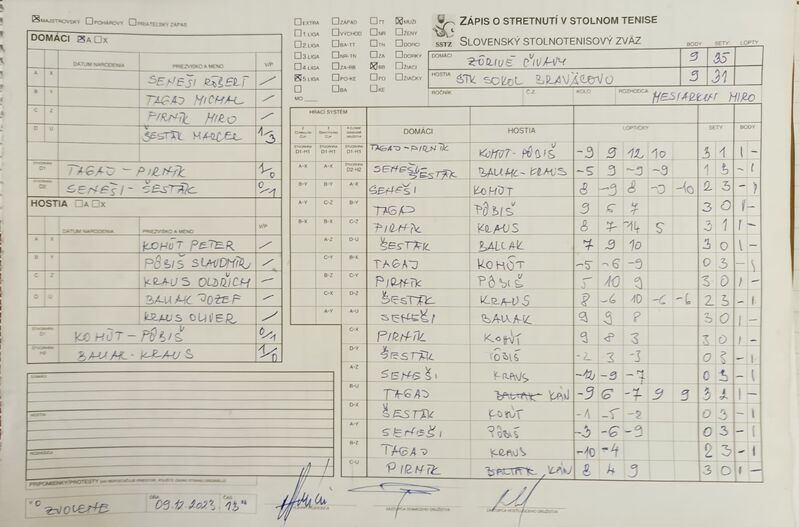 ☒ MAJSTROVSKÝ ☐ POHÁROVÝ ☐ PRIATEĽSKÝ ZÁPAS
ZÁPIS O STRETNUTÍ V STOLNOM TENISE
SLOVENSKÝ STOLNOTENISOVÝ ZVÄZ
SSTZ
☐ EXTRA ☐ ZÁPAD ☐ TT ☒ MUŽI
☐ 1. LIGA ☐ VÝCHOD ☐ NR ☐ ŽENY
☐ 2. LIGA ☐ BA-TT ☐ TN ☐ DORCI
☐ 3. LIGA ☐ NR-TN ☐ ZA ☐ DORKY
☐ 4. LIGA ☐ ZA-BB ☒ BB ☐ ŽIACI
☒ 5. LIGA ☐ PO-KE ☐ PO ☐ ŽIAČKY
☐ BA ☐ KE
MO
BODY SETY LOPTY
DOMÁCI ZÚRIVÉ ČIVAVY 9 35
HOSTIA STK SOKOL BRAVÄCOVO 9 31
ROČNÍK Č.Z. KOLO ROZHODCA MESIARKIN MIRO
DOMÁCI ☒ A ☐ X
DÁTUM NARODENIA PRIEZVISKO A MENO V/P
A X SENEŠI RÓBERT /
B Y TAGAJ MICHAL /
C Z PIRNÍK MIRO /
D U ŠESTÁK MARCEL 1/3
ŠTVORHRA D1 TAGAJ - PIRNÍK 1/0
ŠTVORHRA D2 SENEŠI - ŠESTÁK 0/1
HOSTIA ☐ A ☐ X
DÁTUM NARODENIA PRIEZVISKO A MENO V/P
A X KOHÚT PETER /
B Y PÔBIŠ SLAVOMÍR /
C Z KRAUS OLDŘICH /
D U BALIAK JOZEF /
KRAUS OLIVER /
ŠTVORHRA H1 KOHÚT - PÔBIŠ 0/1
ŠTVORHRA H2 BALIAK - KRAUS 1/0
HRACÍ SYSTÉM
DOMÁCI HOSTIA LOPTIČKY SETY BODY
TAGAJ - PIRNÍK KOHÚT - PÔBIŠ -9 9 12 10 3 1 1 -
SENEŠI - ŠESTÁK BALIAK - KRAUS -5 9 -9 -9 1 3 - 1
SENEŠI KOHÚT 8 -9 8 -9 -10 2 3 - 1
TAGAJ PÔBIŠ 9 5 7 3 0 1 -
PIRNÍK KRAUS 8 7 -14 5 3 1 1 -
ŠESTÁK BALIAK 7 9 10 3 0 1 -
TAGAJ KOHÚT -5 -6 -9 0 3 - 1
PIRNÍK PÔBIŠ 5 10 9 3 0 1 -
ŠESTÁK KRAUS 8 -6 10 -6 -6 2 3 - 1
SENEŠI BALIAK 9 9 8 3 0 1 -
PIRNÍK KOHÚT 9 8 3 3 0 1 -
ŠESTÁK PÔBIŠ -2 3 -3 0 3 - 1
SENEŠI KRAUS -12 -9 -7 0 3 - 1
TAGAJ KÁN -9 6 -7 9 9 3 2 1 -
ŠESTÁK KOHÚT -1 -5 -2 0 3 - 1
SENEŠI PÔBIŠ -3 -6 -9 0 3 - 1
TAGAJ KRAUS -10 -4 2 3 - 1
PIRNÍK KÁN 8 4 9 3 0 1 -
DOMÁCI
HOSTIA
ROZHODCA
PRIPOMIENKY/PROTESTY
VO ZVOLENE DŇA 09.12.2023 ČAS